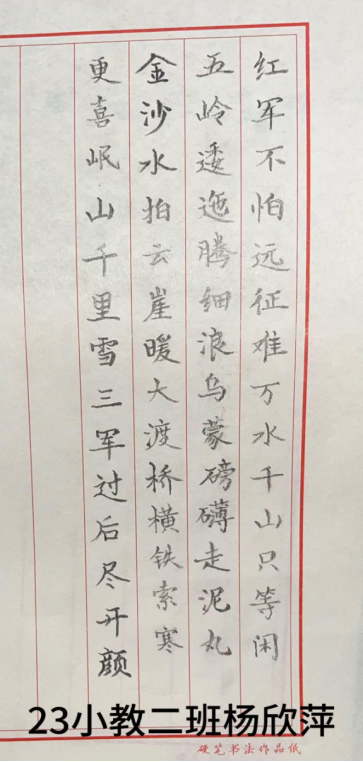 红军不怕远征难万水千山只等闲
五岭逶迤腾细浪乌蒙磅礴走泥丸
金沙水拍云崖暖大渡桥横铁索寒
更喜岷山千里雪三军过后尽开颜
23小教二班杨欣萍
硬笔书法作品纸